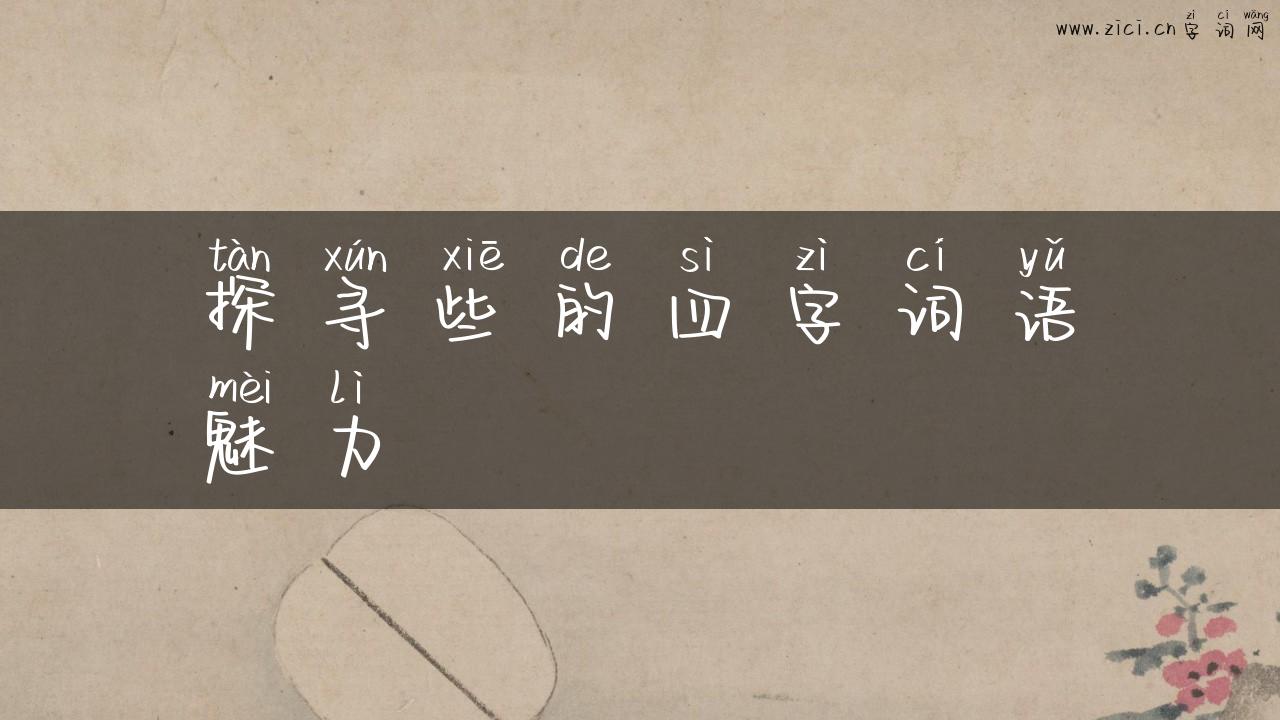 zì cí wǎng
www.zici.cn字词网
tàn xún xiē de sì zì cí yǔ
探寻些的四字词语
mèi lì
魅力